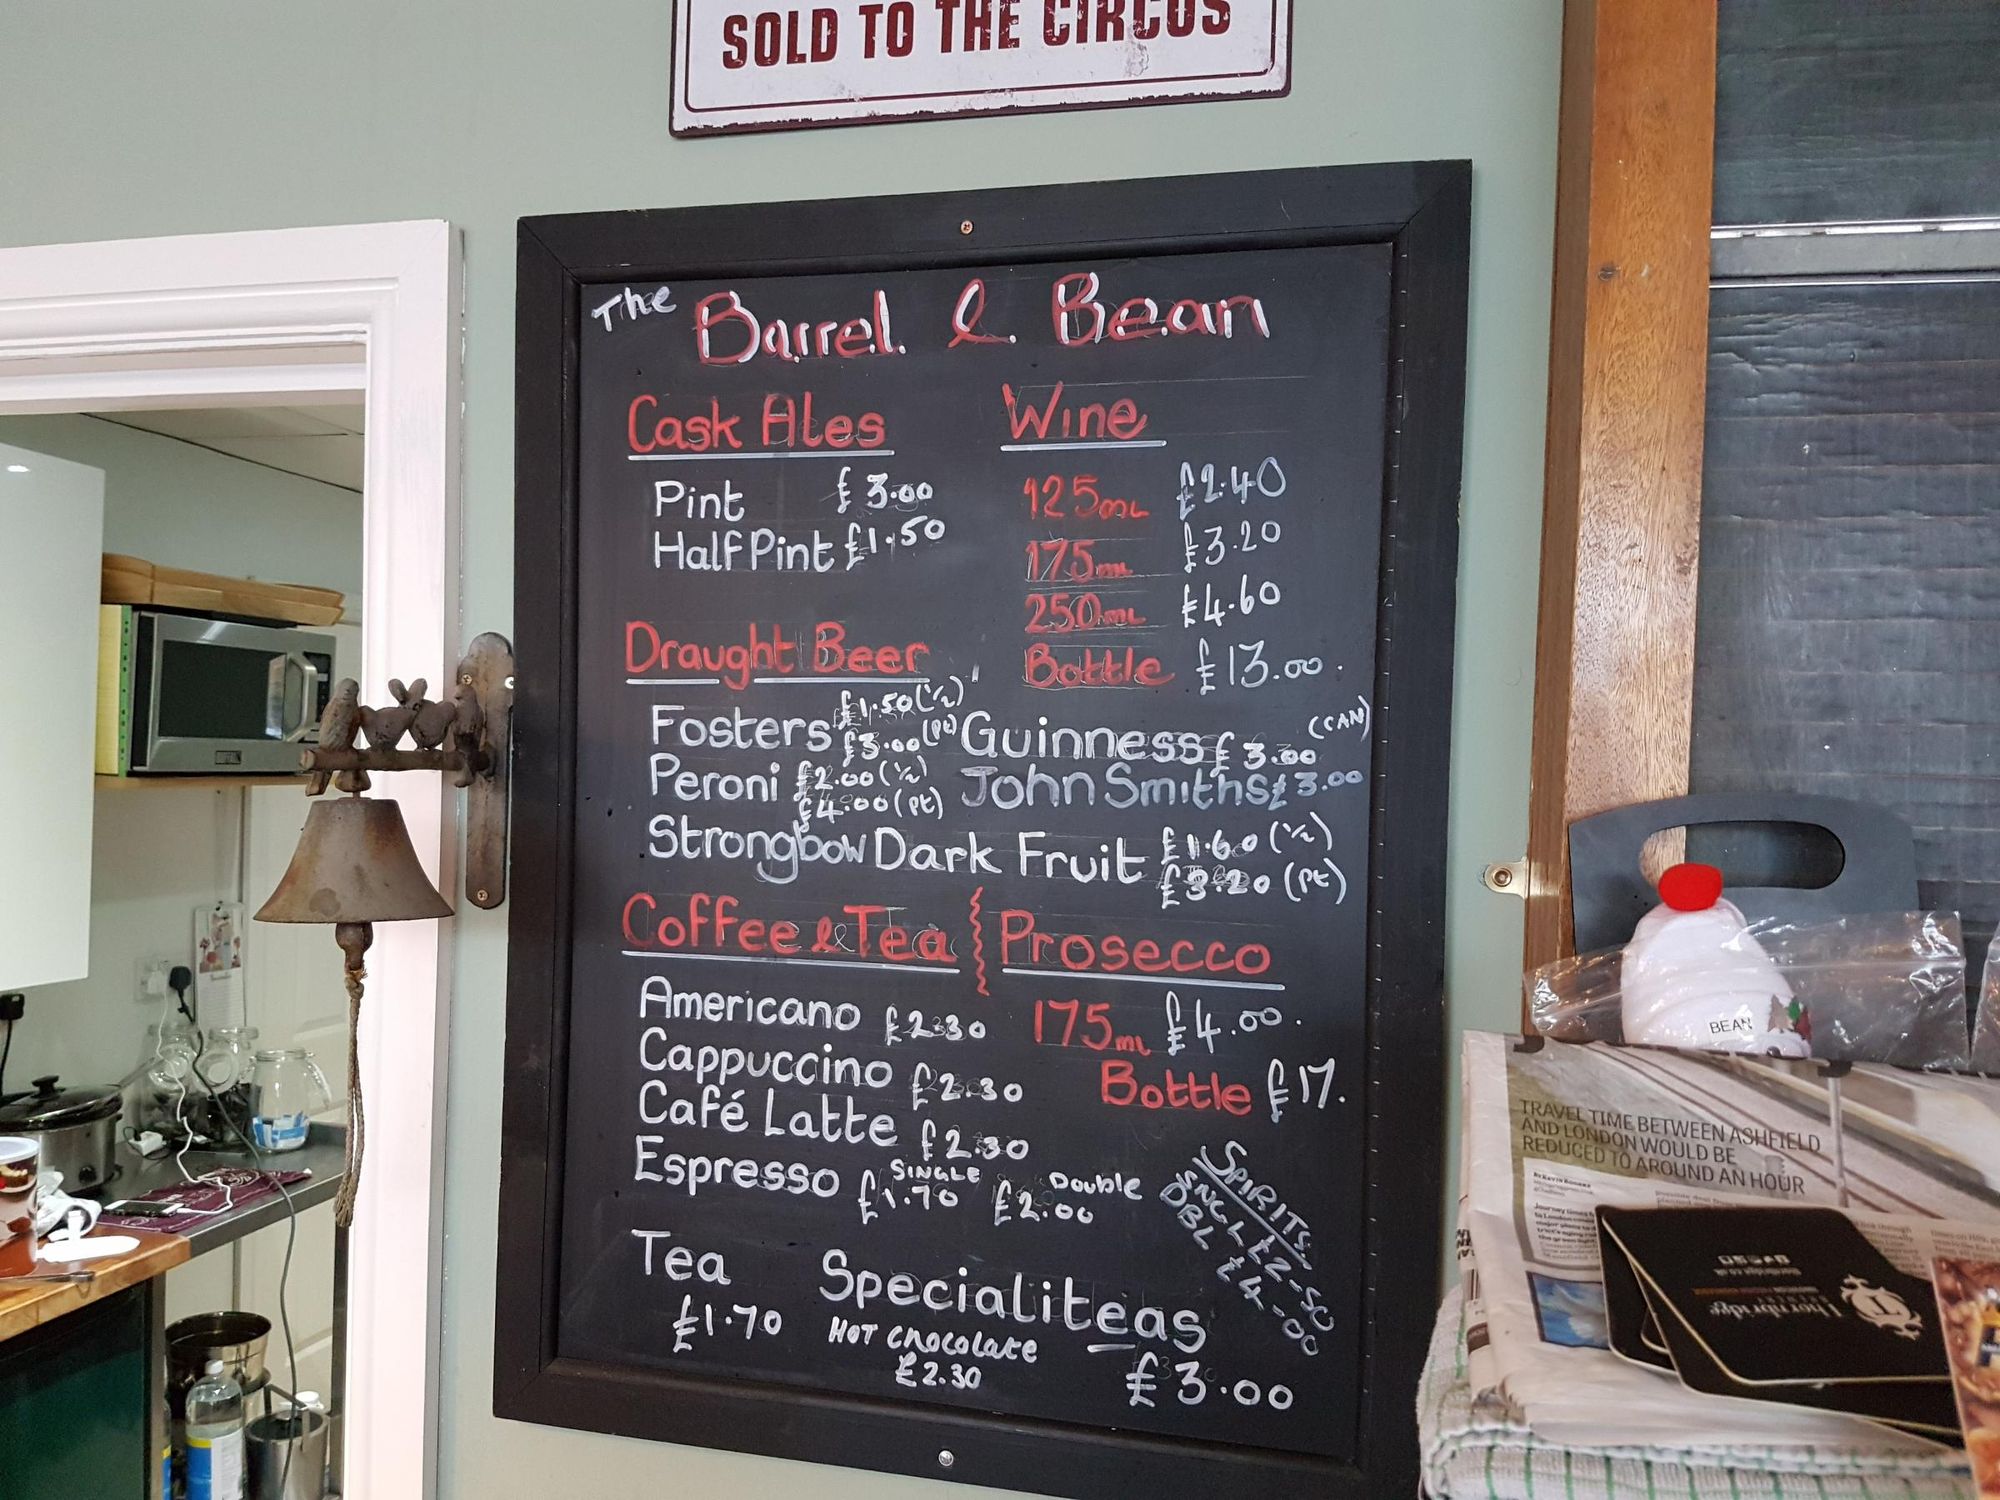 SOLD TO THE CIRCUS
The Barrel & Bean
Cask Ales
Pint £3.00
Half Pint £1.50
Wine
125ml £2.40
175ml £3.20
250ml £4.60
Bottle £13.00.
Draught Beer
Fosters £1.50 (½)
£3.00 (pt)
Peroni £2.00 (½)
£4.00 (pt)
Guinness £3.00 (CAN)
John Smiths £3.00
Strongbow Dark Fruit £1.60 (½)
£3.20 (pt)
Coffee & Tea
Americano £2.30
Cappuccino £2.30
Café Latte £2.30
Espresso SINGLE £1.70 Double £2.00
Tea
£1.70
HOT CHOCOLATE
£2.30
Specialiteas
£3.00
Prosecco
175ml £4.00.
Bottle £17.
SPIRITS
SNGL £2-50
DBL £4-00
BEAN
TRAVEL TIME BETWEEN ASHFIELD
AND LONDON WOULD BE
REDUCED TO AROUND AN HOUR
Thornbridge